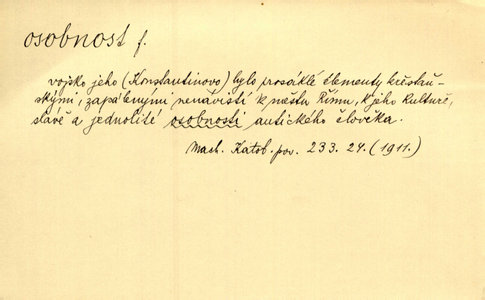 osobnost f.
vojsko jeho (Konstantinovo) bylo prosáklé elementy křesťan-
skými, zapálenými nenávistí k městu Římu, k jeho kultuře,
slávě a jednolité osobnosti antického člověka.
Mach. Katob. pov. 233. 24. (1911.)